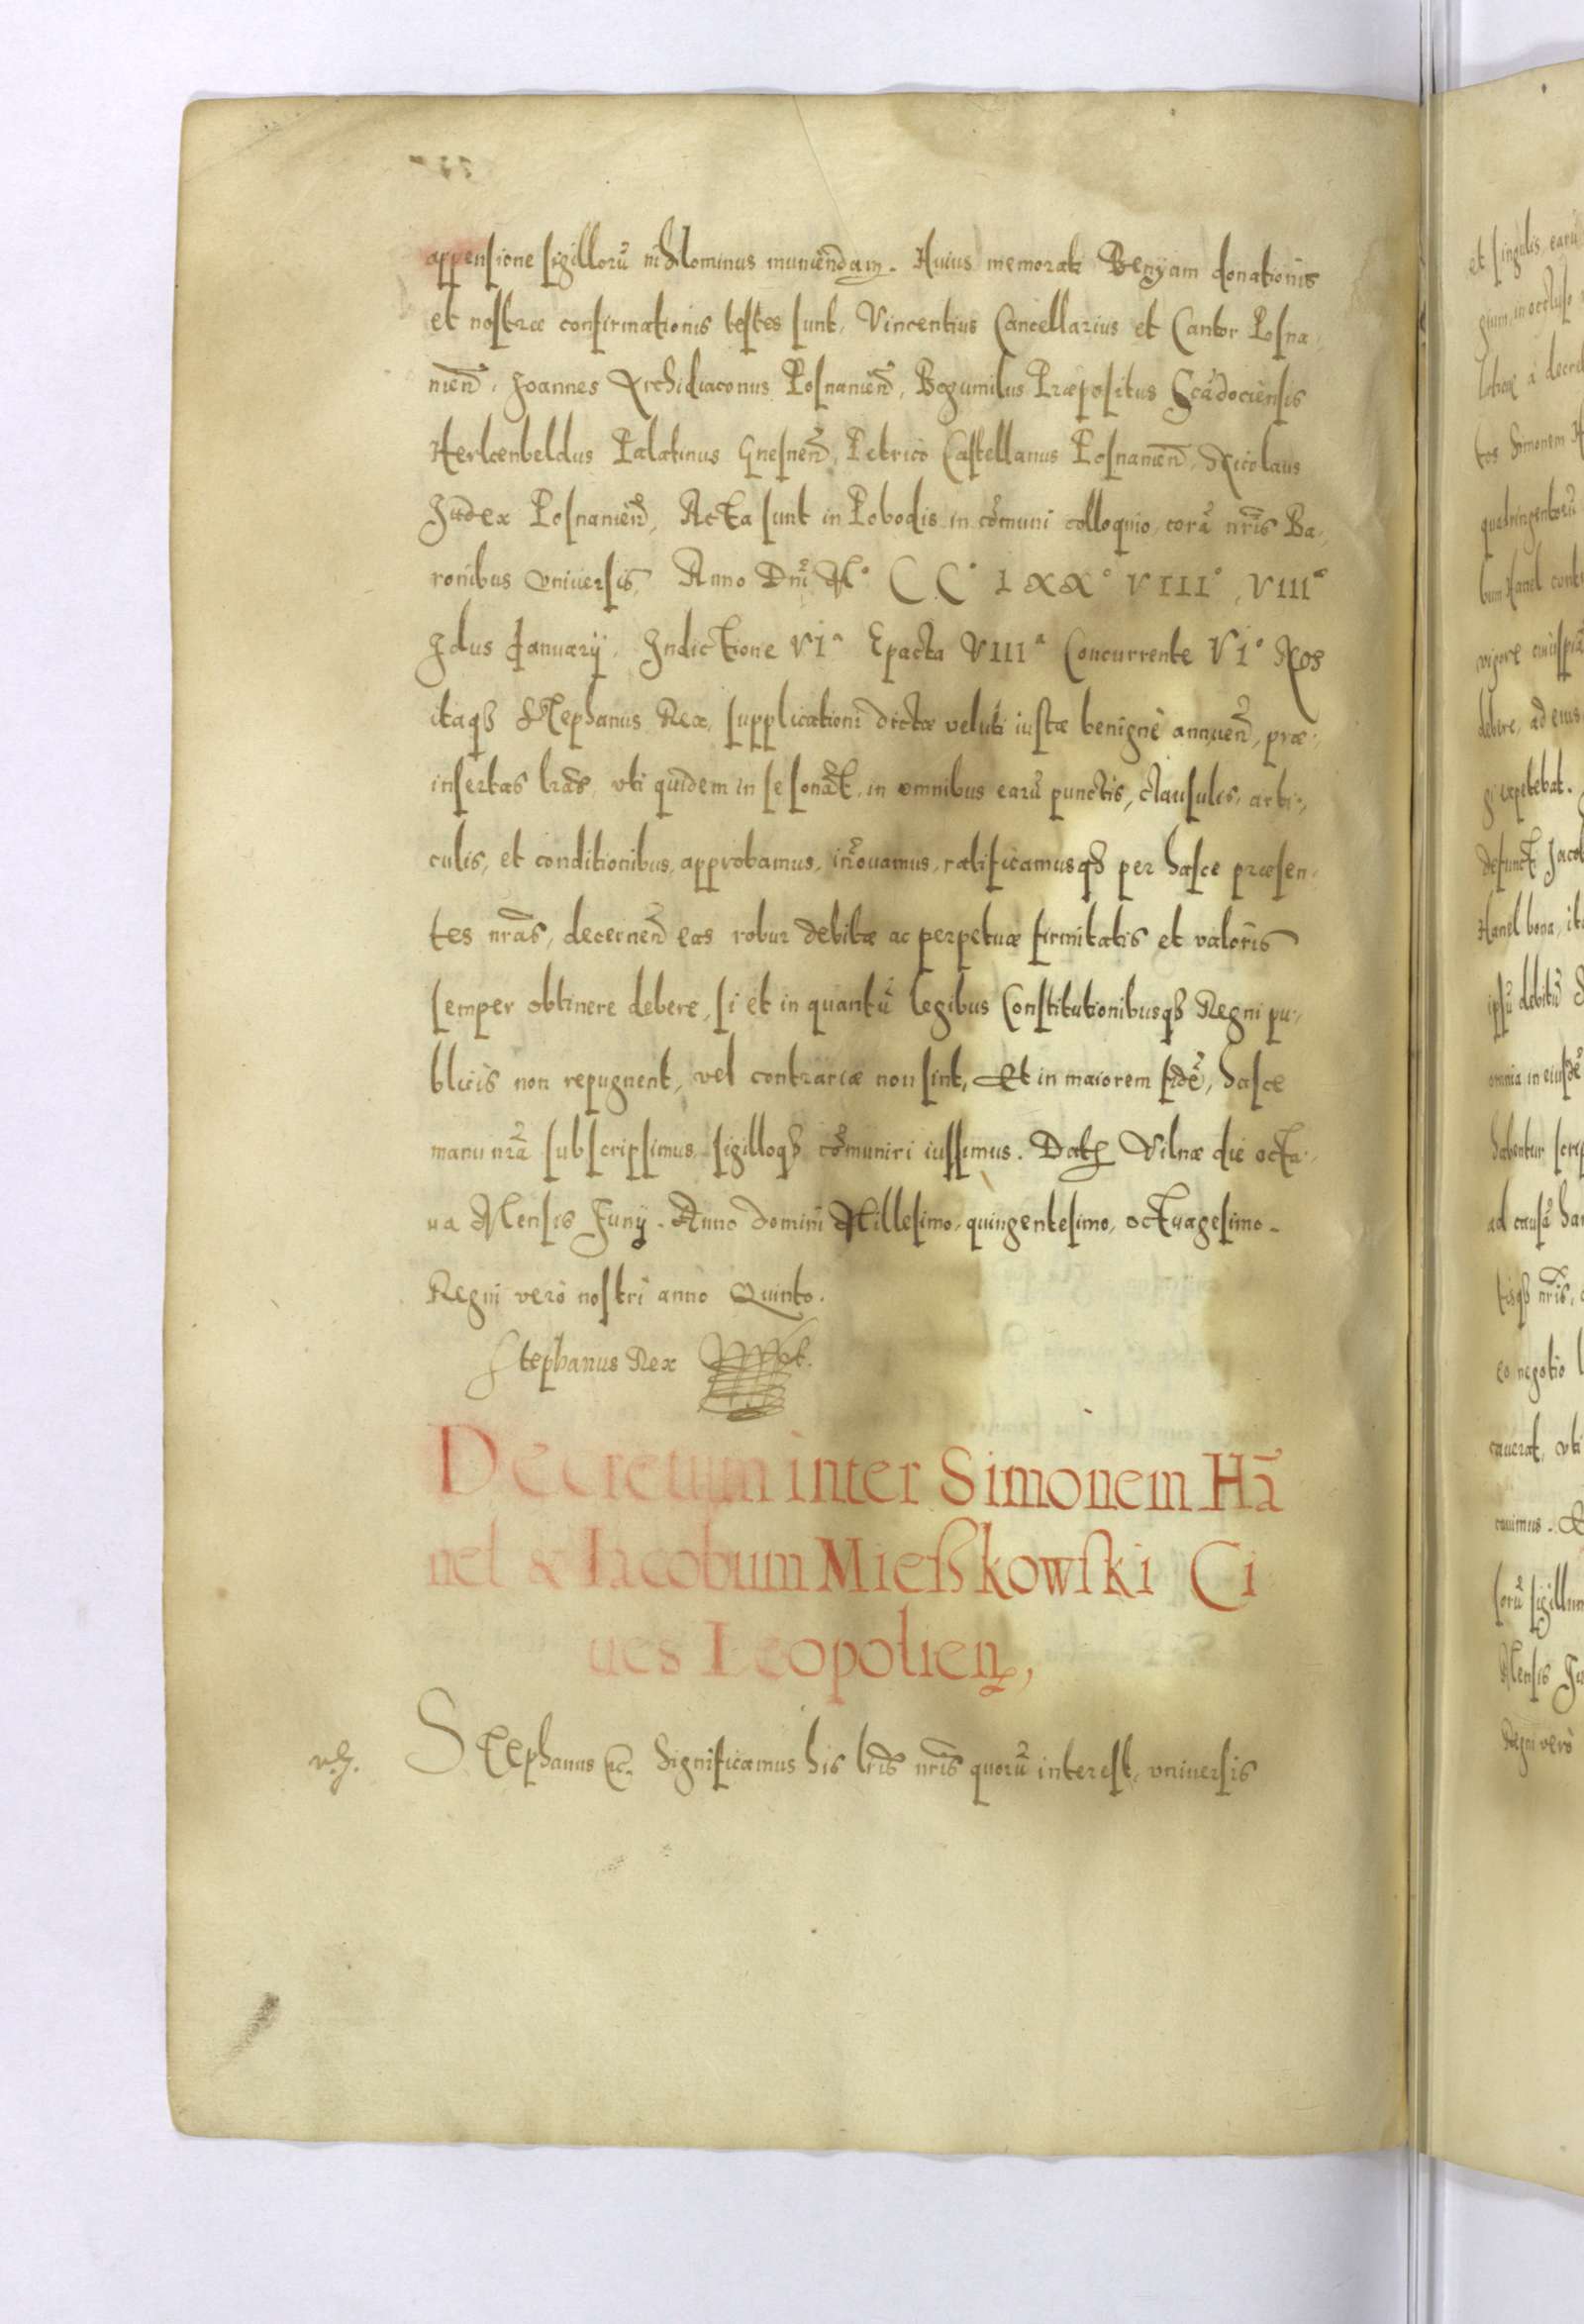 appensione sigillorũ nihilominus muniendam. Huius memorati Benyam donationis
et nostræ confirmationis testes sunt, Vincentius Cancellarius et Cantor Posna-
nieñ, Joannes Archidiaconus Posnanieñ, Bogumilus Præpositus Scãdociensis
Herkenbeldus Palatinus Gnesneñ, Petrico Castellanus Posnanieñ, Nicolaus
Judex Posnanieñ, Acta sunt in Pobodis in cõmuni colloquio, corã nr̃is Ba-
ronibus vniuersis, Anno Dñi M° CC° LXX° VIII°, VIII°
Idus Januarÿ, Indictione VIª Epacta VIIIª Concurrente VI° Nos
itaqȝ Stephanus Rex, supplicationi dictæ veluti iustæ benignè annueñ, præ-
insertas lr̃as, vti quidem in se sonãt, in omnibus earũ punctis, clausulis, arti-
culis, et conditionibus, approbamus, iñouamus, ratificamusqȝ per hasce præsen-
tes nr̃as, decerneñ eas robur debitæ ac perpetuæ firmitatis et valoris
semper obtinere debere, si et in quantũ legibus Constitutionibusqȝ Regni pu-
blicis non repugnent, vel contrariæ non sint, Et in maiorem fidẽ, hasce
manu nr̃a subscripsimus sigilloqȝ cõmuniri iussimus. Datꝭ Vilnæ die octa-
ua Mensis Junÿ. Anno domini Millesimo, quingentesimo, octuagesimo.
Regni verò nostri anno Quinto.
Stephanus Rex
Decretum inter Simonem Hã
nel & Iacobum Mießkowſki Ci
ues Leopolieñ,
Stephanus ꝛc. Significamus his lr̃is nr̃is quorũ interest, vniuersis